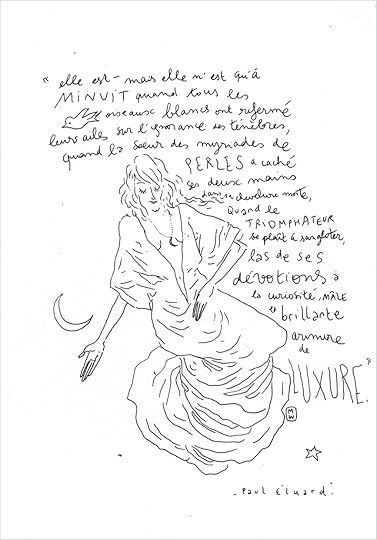 “ elle est - mais elle n'est qu'à
MiNUiT quand tous les
oiseaux blancs ont refermé
leurs ailes sur l'ignorance des ténèbres,
quand la sœur des myriades de
PERLES a caché
ses deux mains
dans sa chevelure morte,
Quand le
TRiOMPHATEUR
se plaît à sangloter,
las de ses
dévotions à
la curiosité, MÂLE
et brillante
armure
de
LUXURE.”
MW
- Paul Éluard -